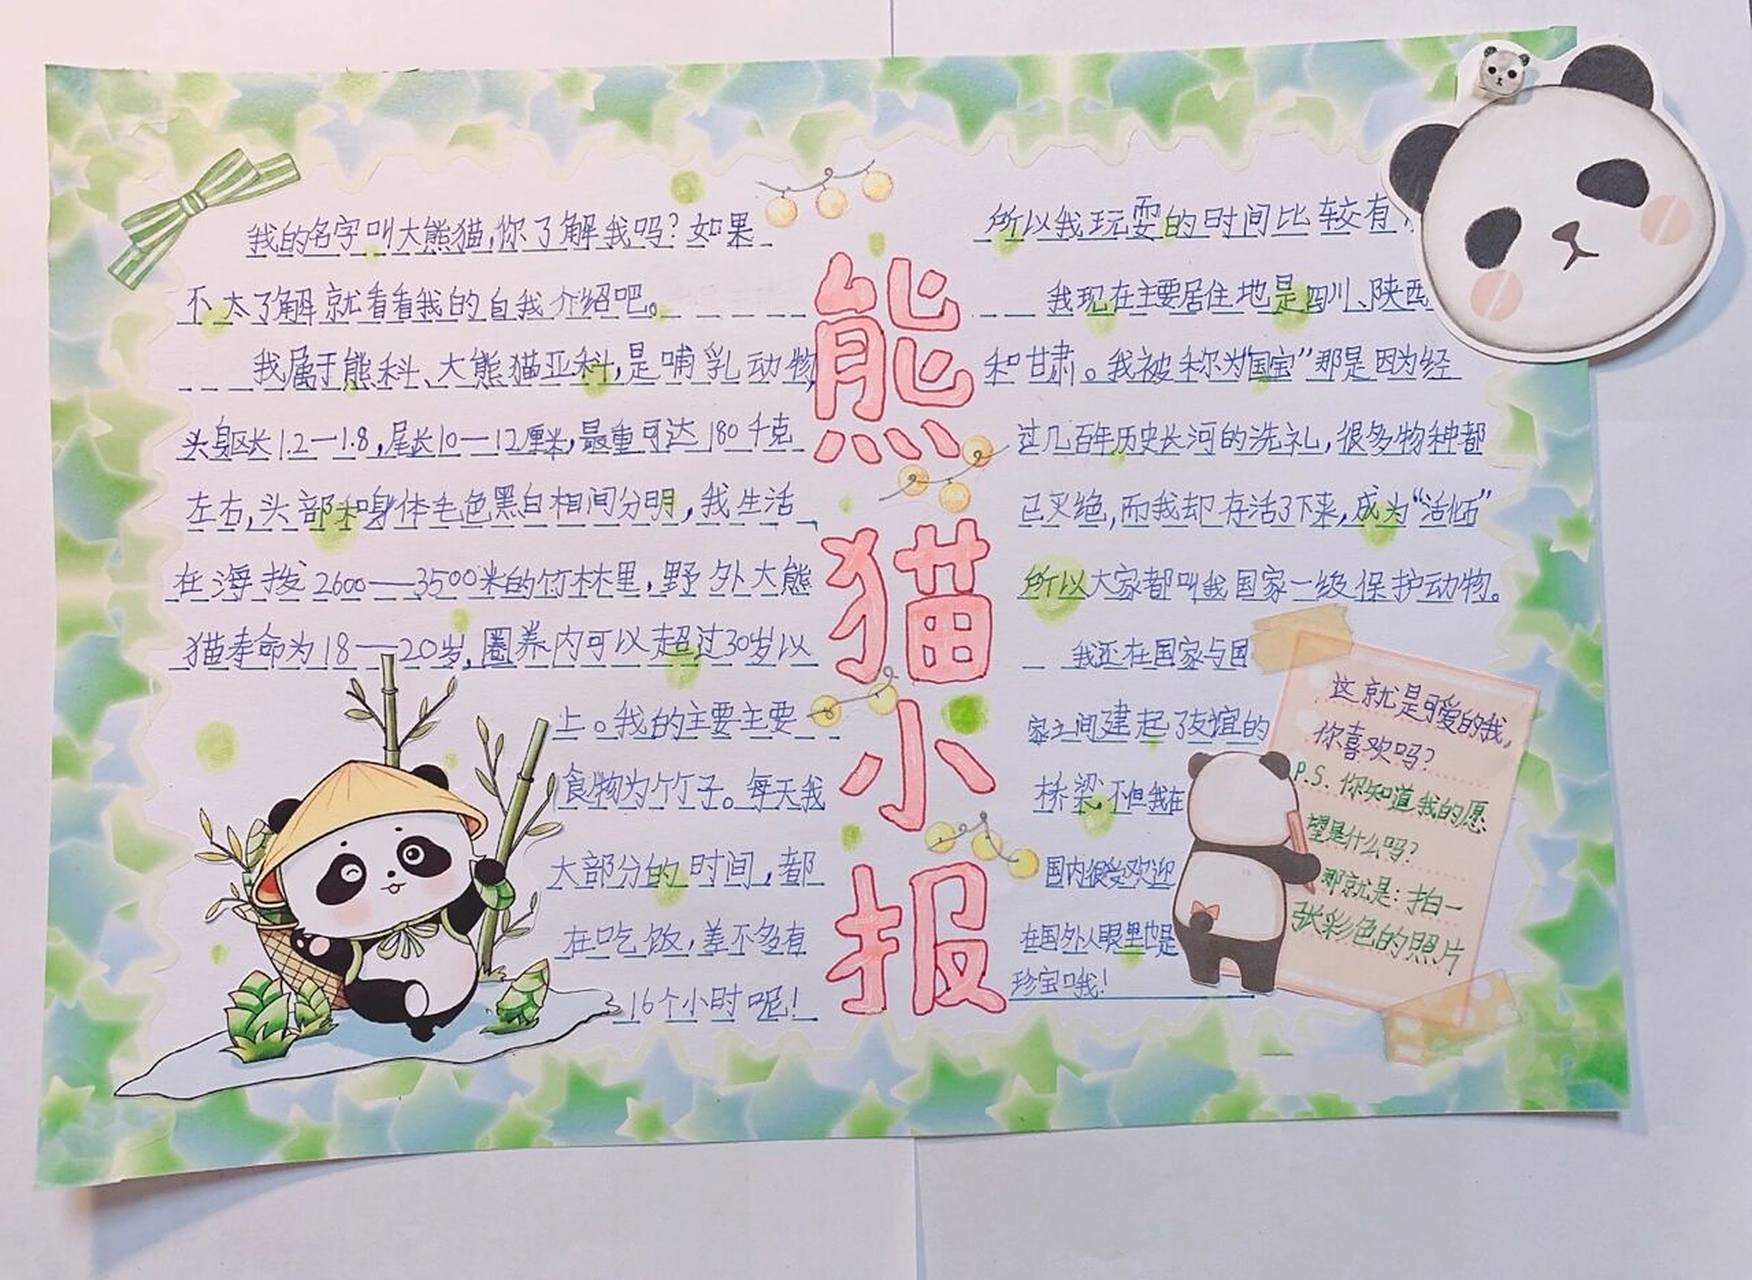 我的名字叫大熊猫,你了解我吗?如果
不太了解就看看我的自我介绍吧。
我属于熊科、大熊猫亚科,是哺乳动物
头身区长1.2—1.8,尾长10—12厘米,最重可达180千克
左右,头部和身体毛色黑白相间分明,我生活
在海拨2600—3500米的竹林里,野外大熊
猫寿命为18—20岁,圈养内可以超过30岁以
上。我的主要主要
食物为竹子。每天我
大部分的时间,都
在吃饭,差不多有
16个小时呢!
熊猫小报
所以我玩耍的时间比较有
我现在主要居住地是四川、陕西
和甘肃。我被称为“国宝”那是因为经
过几百年历史长河的洗礼,很多物种都
已灭绝,而我却存活了下来,成为“活化石”
所以大家都叫我国家一级保护动物。
我还在国家与国
家之间建起了友谊的
桥梁,不但我在
国内很受欢迎
在国外人眼里也是
珍宝哦!
这就是可爱的我,
你喜欢吗?
P.S.你知道我的愿
望是什么吗?
那就是:拍一
张彩色的照片